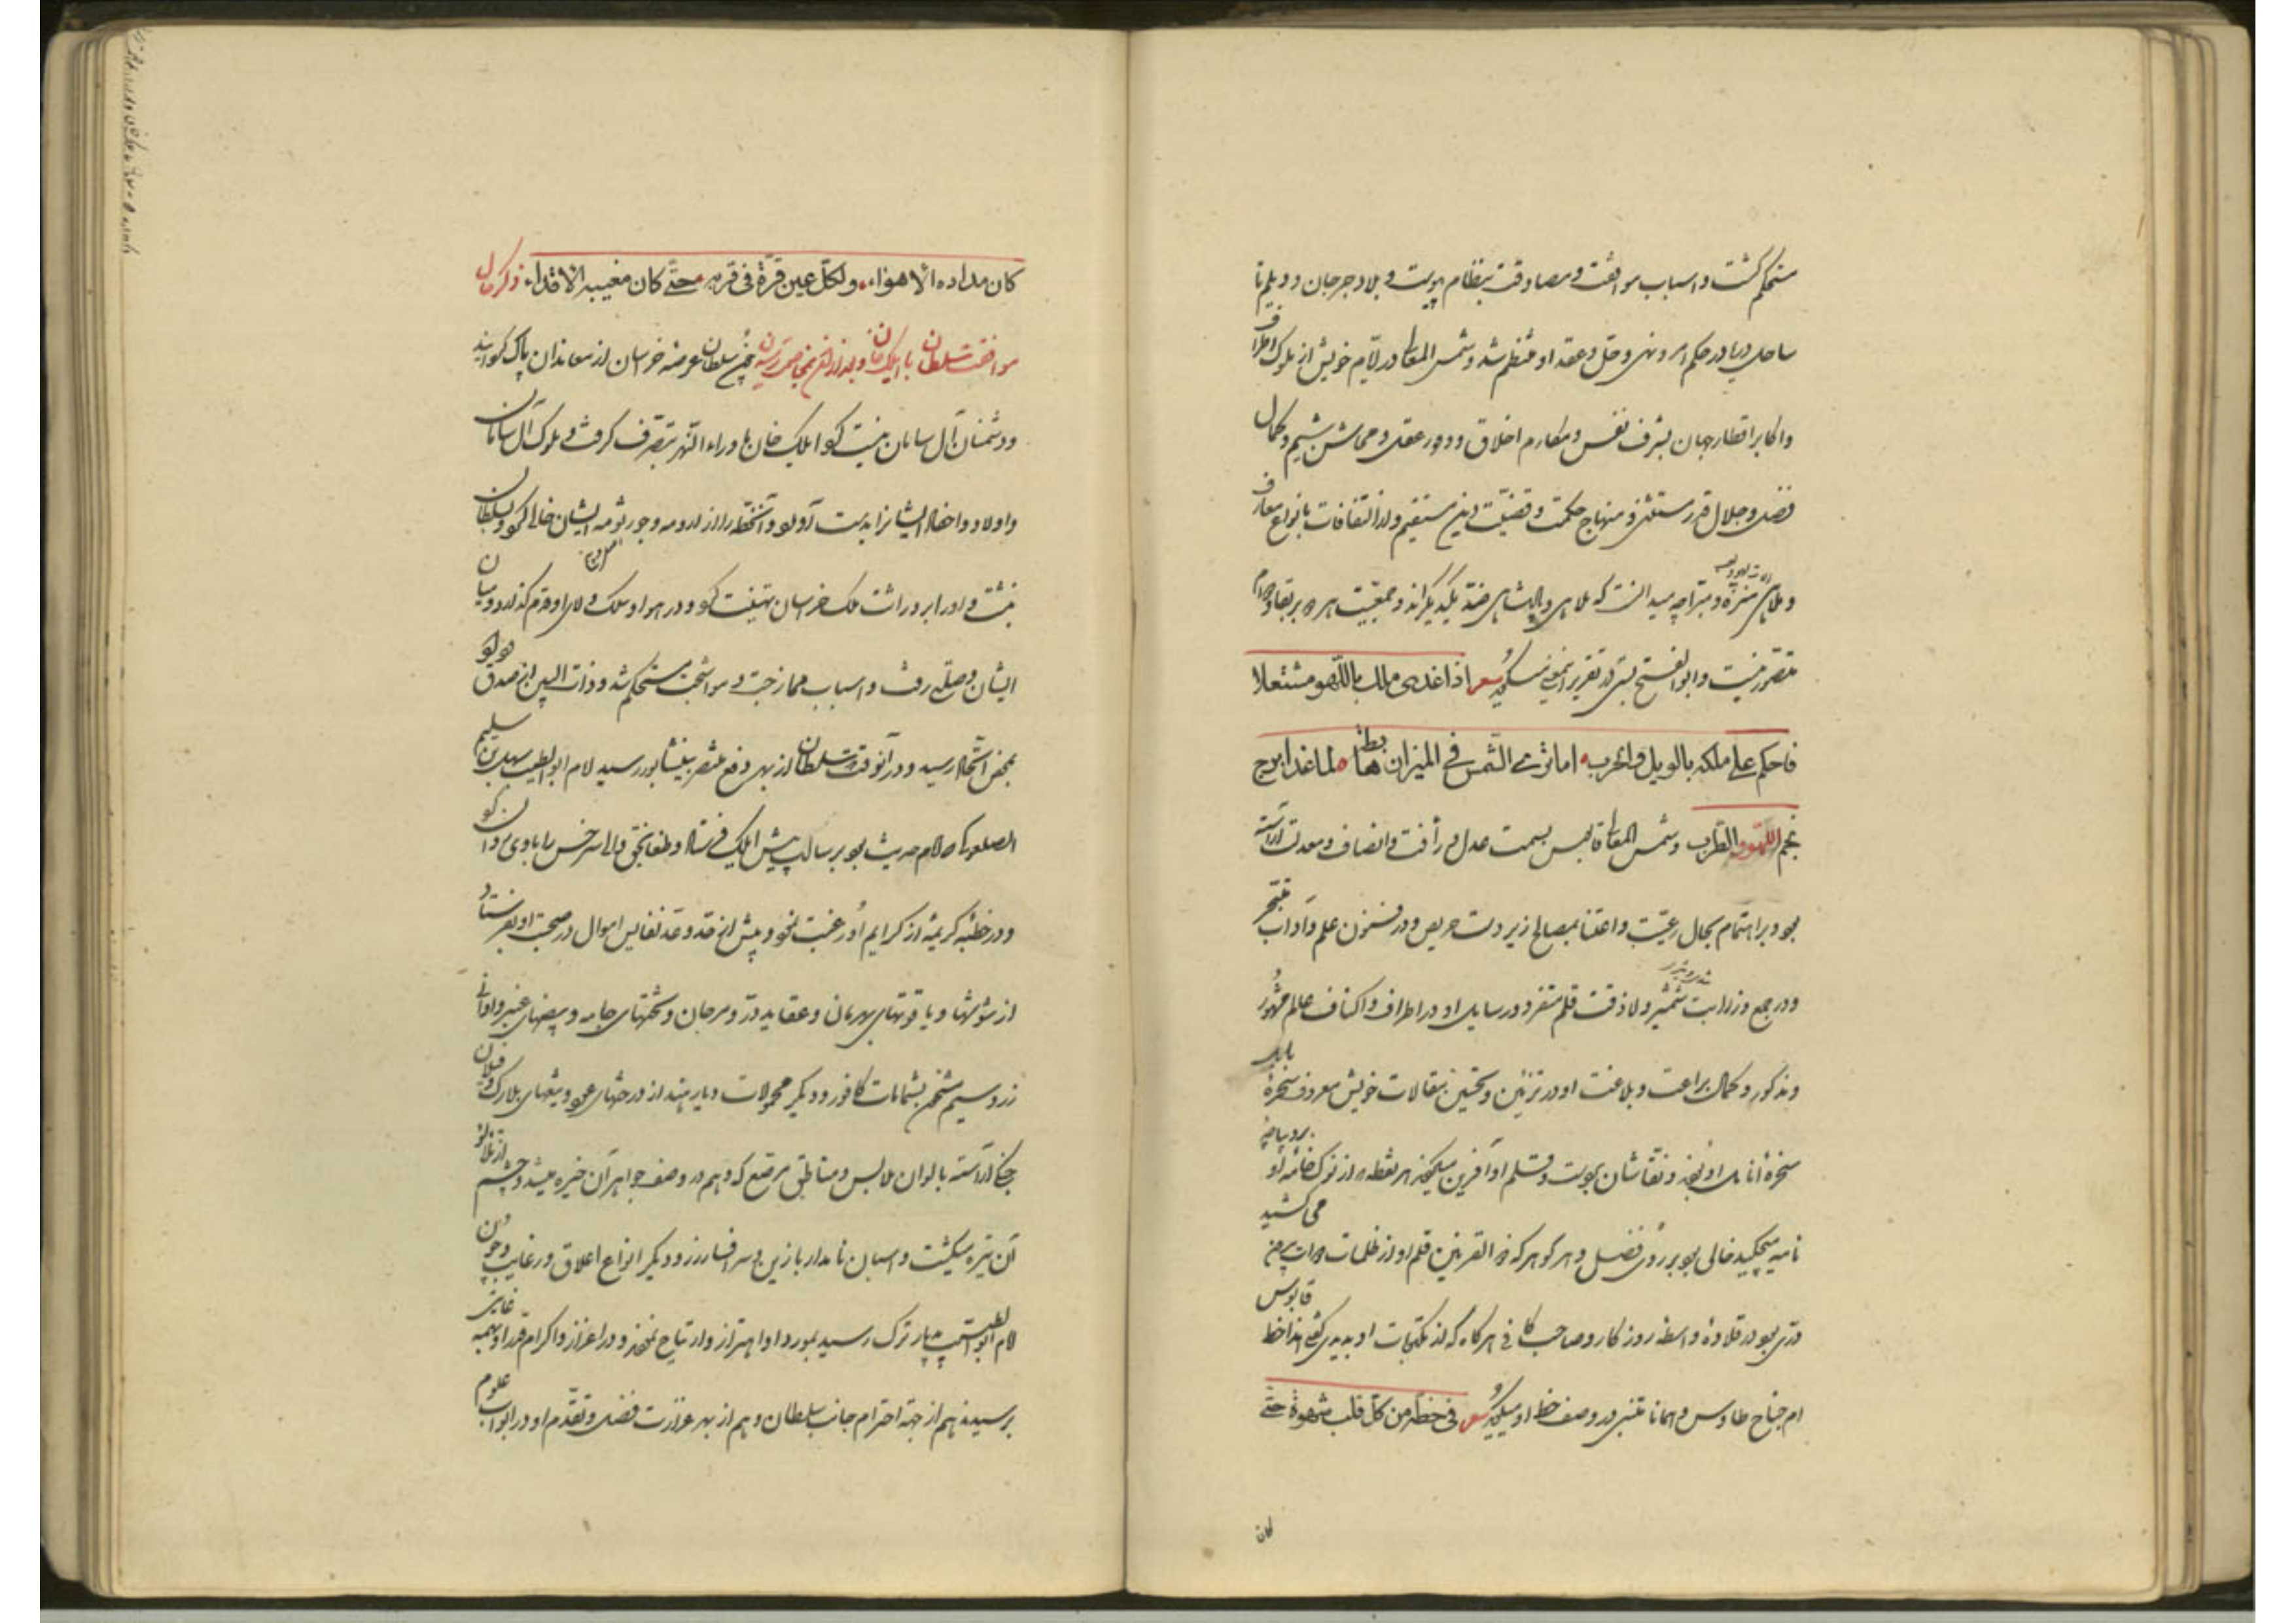 مستحکم گشت و اسباب موافقت و مصادقت بنظام پیوست و بلاد جرجان و دیلم تا
ساحل دریا در حکم امر و نهی و حل و عقد او منتظم شد و شمس المعالی در ایام خویش از ملوک اطراف
و اکابر اقطار جهان بشرف نفس و مکارم اخلاق و وفور عقل و محاسن شیم و کمال
فضل و جلال قدر مستثنی و منهاج حکمت و قضیت دین مستقیم و از التفات بانواع معازف
و ملاهی منزه و مبرا چه میدانست که ملاهی و پادشاهی ضد یکدیگراند و جمعیت هر دو بر بقا و دوام
متصور نیست و ابو الفتح بستی در تقریر این معنی میگوید شعر اذا غدی ملک باللهو مشتغلا
فاحکم علی ملکه بالویل والحرب اما تری الشمس فی المیزان هابطة لما غدا برج
نجم اللهو والطرب و شمس المعالی قابوس بسمت عدل و رأفت و انصاف و معدلت آراسته
بود و بر اهتمام بحال رعیت و اعتنا بمصالح زیر دست حریص و در فنون علم و آداب متبحر
و در جمع وزرابت شمشیر و لاذقت قلم متفرد و رسایل او در اطراف و اکناف عالم مشهور
و مذکور و کمال براعت و بلاغت او در تزیین و تحسین مقالات خویش معروف سخره
سخره انامل او بودند و نقاشان بدست و قلم او آفرین میکردند هر نقطه که از نوک خامه او بر دیباچه
نامه میچکید خالی بود بر روی فضل و هر گوهر که ذو القرنین قلم او از ظلمات دوات بیرون می کشید
دری بود در قلاده واسطه روزگار و صاحب کافی هر گاه که از مکتوبات او بدیدی گفتی هذا خط قابوس
ام جناح طاوس و همانا متنبی در وصف خط او میگوید شعر فی خطه من کل قلب شهوة حتی
کان
کان مداده الاهواء ولکل عین قرة فی قربه حتی کان مغیبه الاقذاء ذکر حال
موافقت سلطان با ایلک خان و بعد از آن بمخاصمت رسیدن چون سلطان عرصه خراسان از معاندان پاک گردانید
و دشمنان آل سامان نیست کرد ایلک خان ماوراء النهر بتصرف گرفت و ملوک آل سامان
و اولاد و احفاد ایشانرا بدست آورد و آن خطه را از ارومه و جرثومه ایشان خالی کرد و بسلطان
نبشت و او را بر وراثت ملک خراسان تهنیت کرد و در هوا و سلک ولای او قدم گذارد و میان
ایشان وصلتی رفت و اسباب ممازجت و مواشجت مستحکم شد و ذات البین از صدق
بمحض اتحاد رسید و در آنوقت سلطان از بهر دفع منتصر بنیشابور رسید امام ابو الطیب سهل بن سلیمن
الصعلوکی که امام حدیث بود برسالت پیش ایلک فرستاد و طغانجق والی سرخس را با وی روان کرد
و در خطبه کریمه از کرایم او رغبت نمود و بیش از حد و عد نفایس اموال در صحبت او بفرستاد
از شوشها و یاقوتهای بهرمان و عقاید در و مرجان و تختهای جامه و بیضهای عنبر و اوانی
زر و سیم مشحون بشمامات کافور و دیگر محمولات دیار هند از درختهای عود و تیغهای بلارک و فیلان
جنگی آراسته بالوان ملابس و مناطق مرصع که وهم در وصف جواهر آن خیره میشد و چشم از تلألؤ
آن تیره میگشت و اسبان نامدار با زین و سرافسار زر و دیگر انواع اعلاق و رغایب و چون
امام ابو الطیب بدیار ترک رسید بورود او اهتزاز و ارتیاح نمودند و در اعزاز و اکرام قدر او بهمه غایتی
برسیدند هم از جهة احترام جانب سلطان و هم از بهر غزارت فضل و تقدم او در ابواب علوم